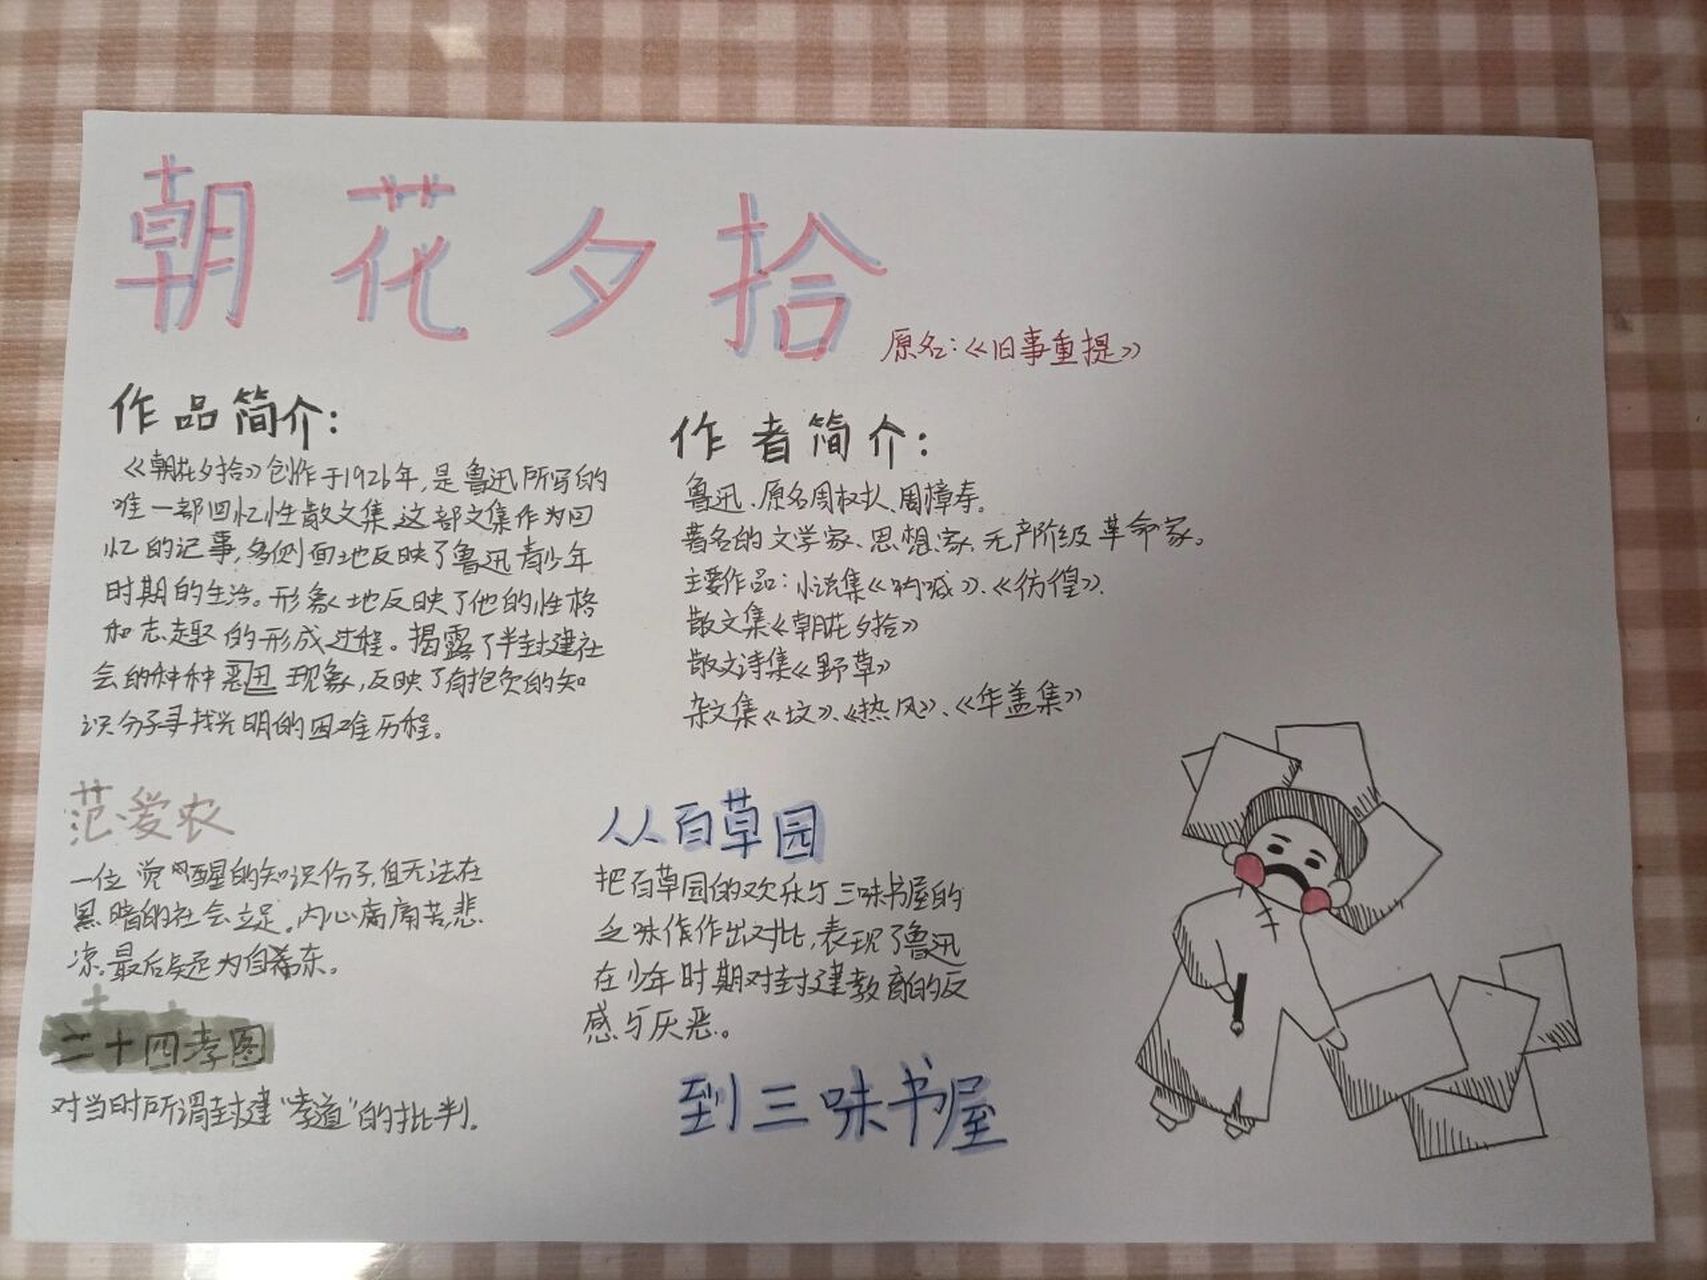 朝花夕拾
原名：《旧事重提》
作品简介：
《朝花夕拾》创作于1926年，是鲁迅所写的
唯一部回忆性散文集，这部文集作为回
忆的记事，多侧面地反映了鲁迅青少年
时期的生活。形象地反映了他的性格
和志趣的形成过程。揭露了半封建社
会的种种恶丑现象，反映了有抱负的知
识分子寻找光明的困难历程。
作者简介：
鲁迅、原名周树人、周樟寿。
著名的文学家、思想家、无产阶级革命家。
主要作品：小说集《呐喊》、《彷徨》、
散文集《朝花夕拾》
散文诗集《野草》
杂文集《坟》、《热风》、《华盖集》
范爱农
一位觉醒的知识份子，但无法在
黑暗的社会立足。内心痛苦悲
凉。最后
二十四孝图
对当时所谓封建“孝道”的批判。
从百草园
把百草园的欢乐与三味书屋的
乏味作出对比，表现了鲁迅
在少年时期对封建教育的反
感与厌恶。
到三味书屋